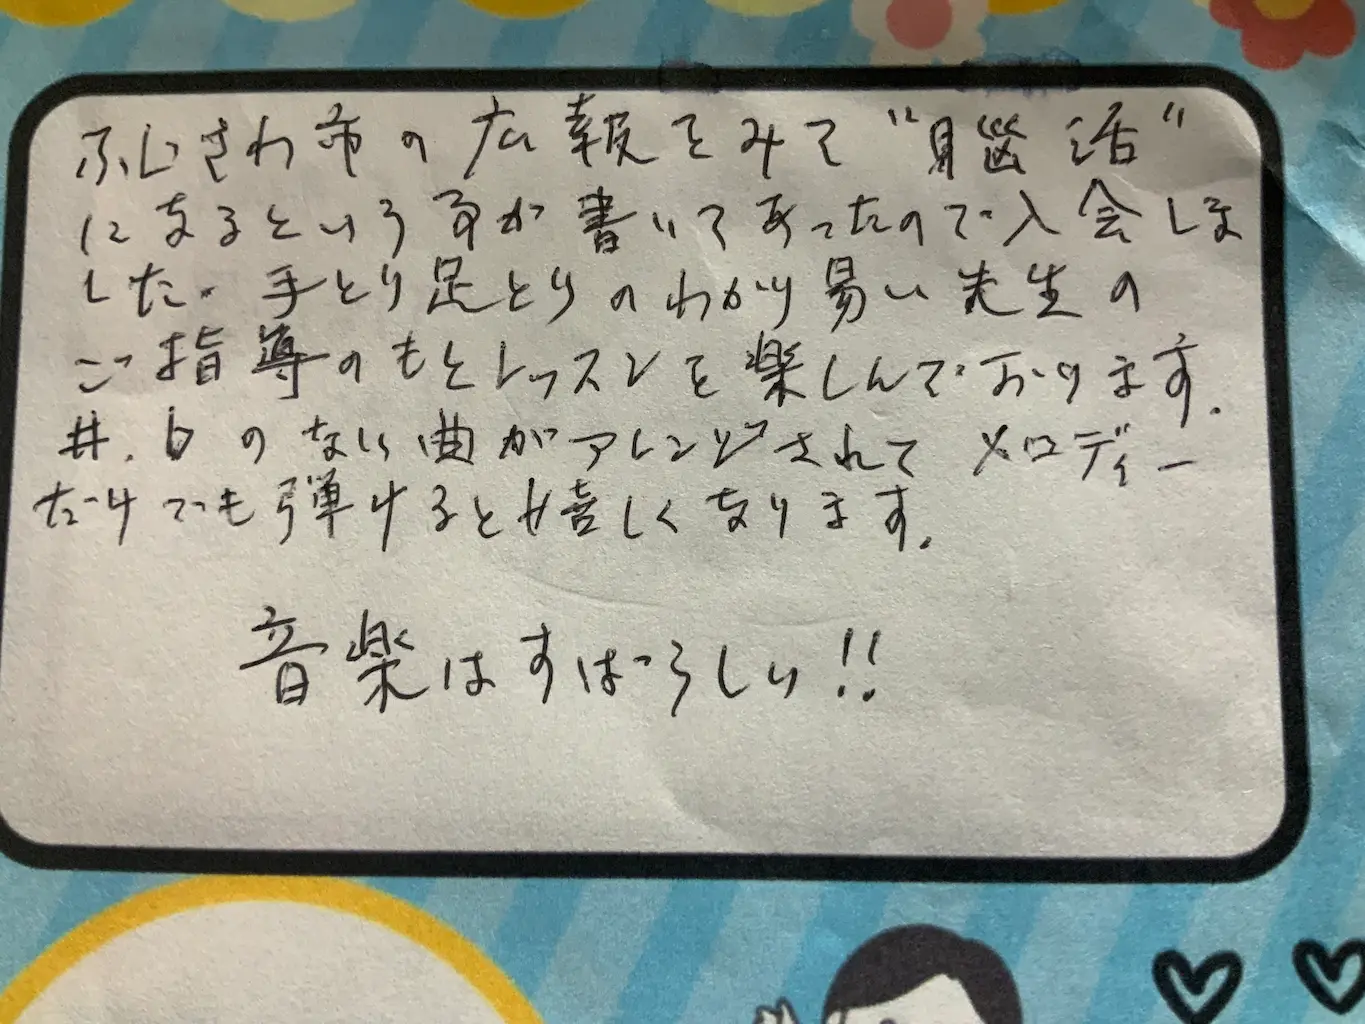 ふじさわ市の広報をみて“脳活”
になるという事が書いてあったので入会しま
した。手とり足とりのわかり易い先生の
ご指導のもとレッスンを楽しんでおります.
#.♭のない曲がアレンジされてメロディー
だけでも弾けると嬉しくなります.
音楽はすばらしい!!